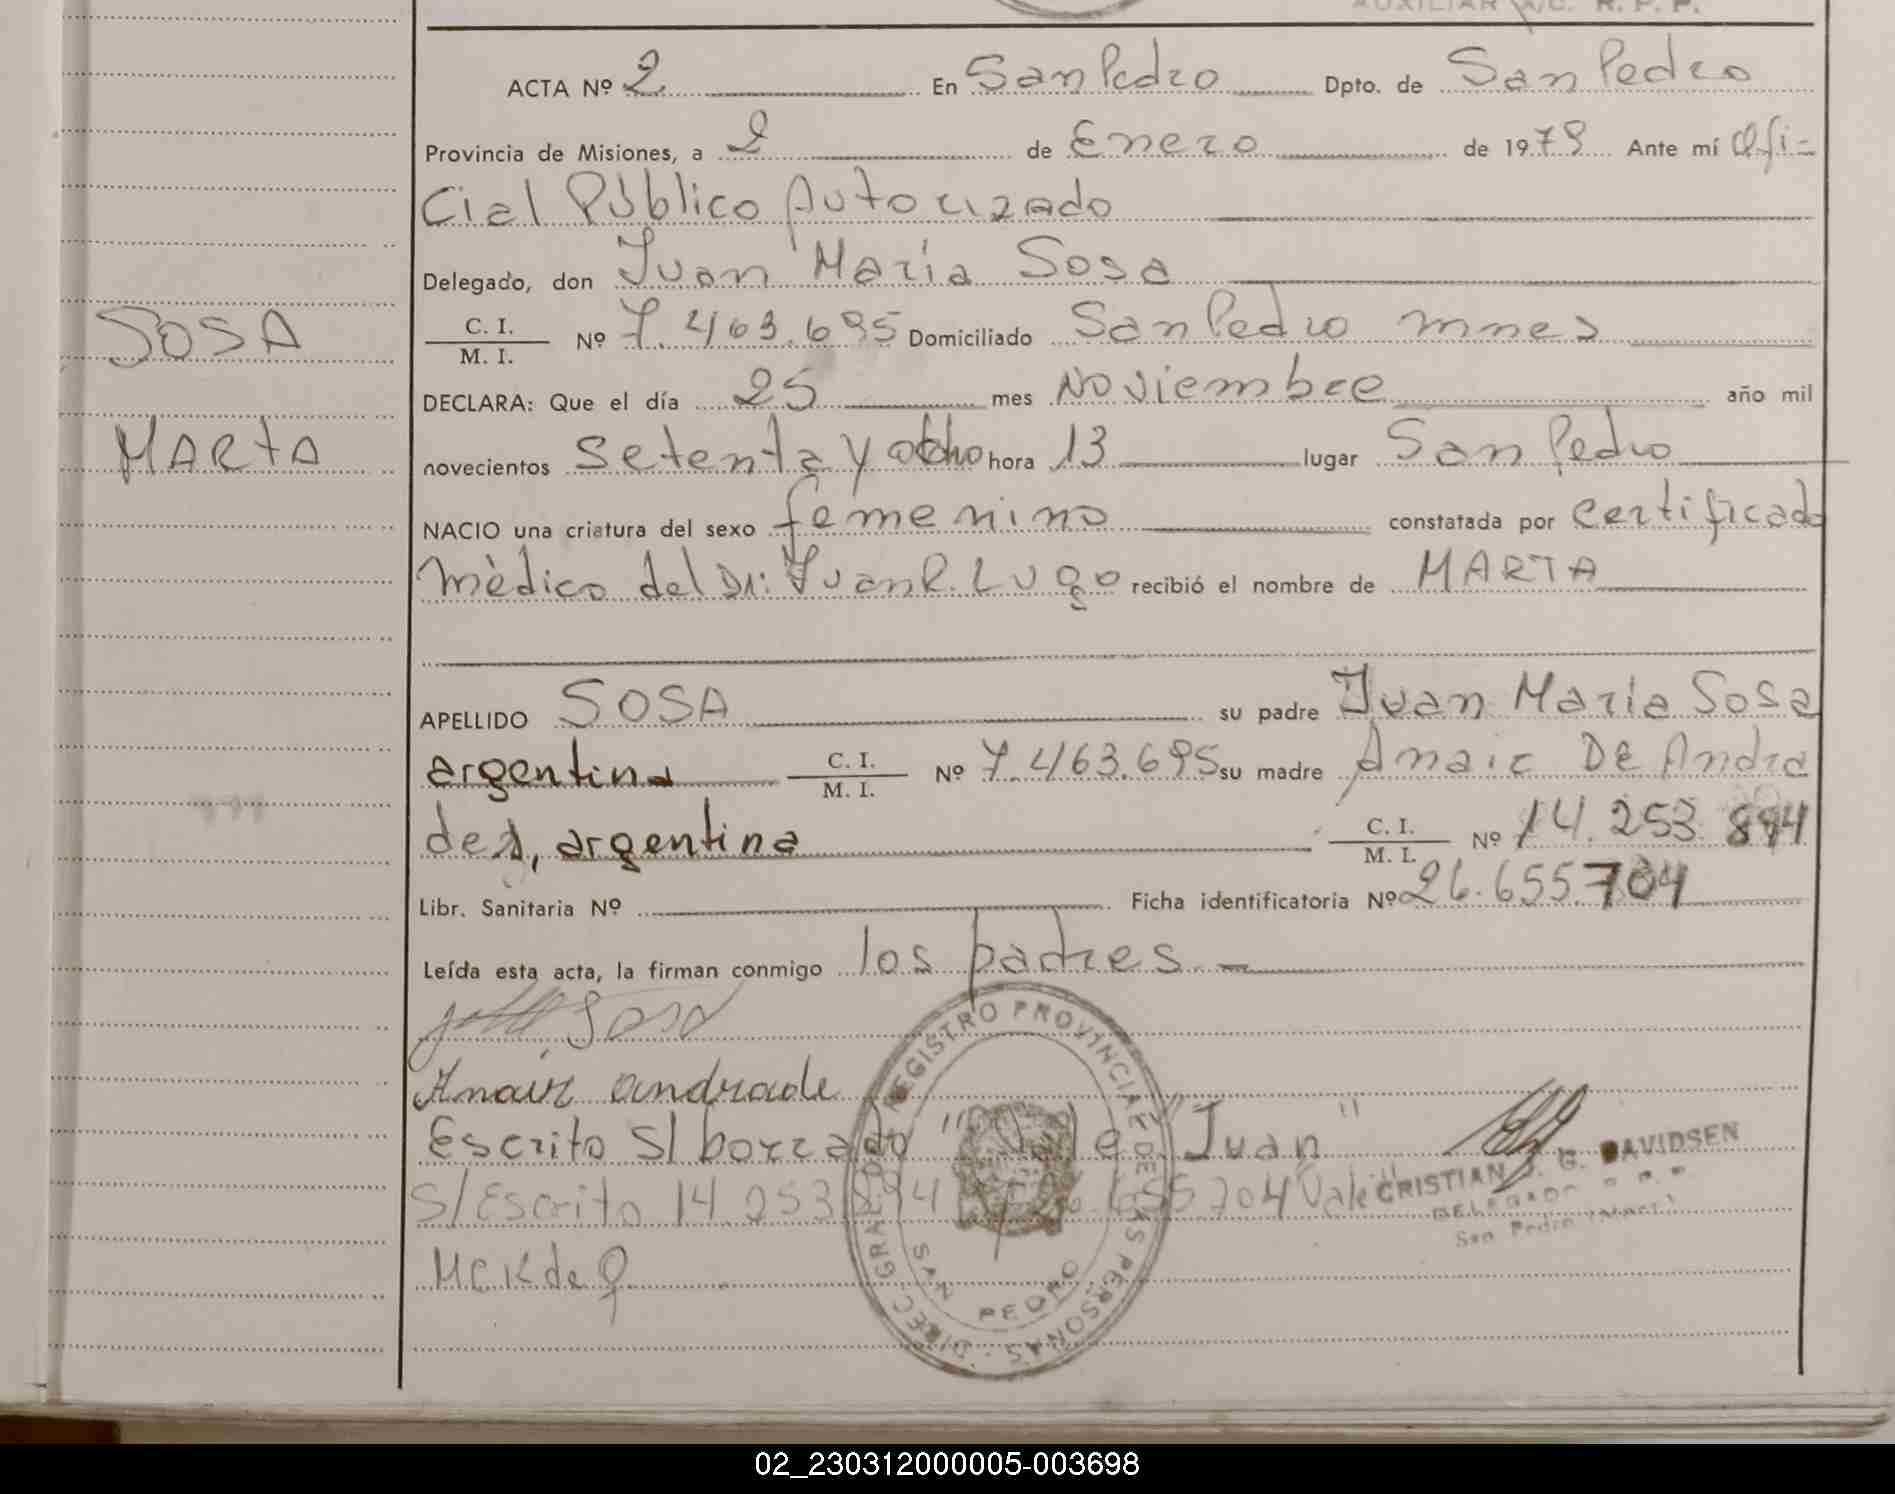 AUXILIAR A/C. R. P. P.
ACTA Nº 2 En San Pedro Dpto. de San Pedro
Provincia de Misiones, a 2 de Enero de 1979 Ante mí Ofi-
cial Público Autorizado
Delegado, don Juan María Sosa
C. I.
M. I. Nº 7.463.695 Domiciliado San Pedro mnes
SOSA
DECLARA: Que el día 25 mes Noviembre año mil
MARTA
novecientos setenta y ocho hora 13 lugar San Pedro
NACIO una criatura del sexo femenino constatada por certificado
mèdico del Dr: Juan R. Lugo recibió el nombre de MARTA
APELLIDO SOSA su padre Juan María Sosa
argentina C. I. M. I. Nº 7.463.695 su madre Anair De Andra
des, argentina C. I. M. I. Nº 14.253.894
Libr. Sanitaria Nº Ficha identificatoria Nº 26.655.704
Leída esta acta, la firman conmigo los padres.-
Sosa
Anair Andrade
Escrito S/ borrado " Vale "Juan"
S/Escrito 14.253.894 655704 Vale
MCK de
REGISTRO PROVINCIAL DE LAS PERSONAS - DIREC. GRAL. DEL
SAN PEDRO
CRISTIAN G. DAVIDSEN
DELEGADO R. P. P.
San Pedro (Mnes.)
02_230312000005-003698